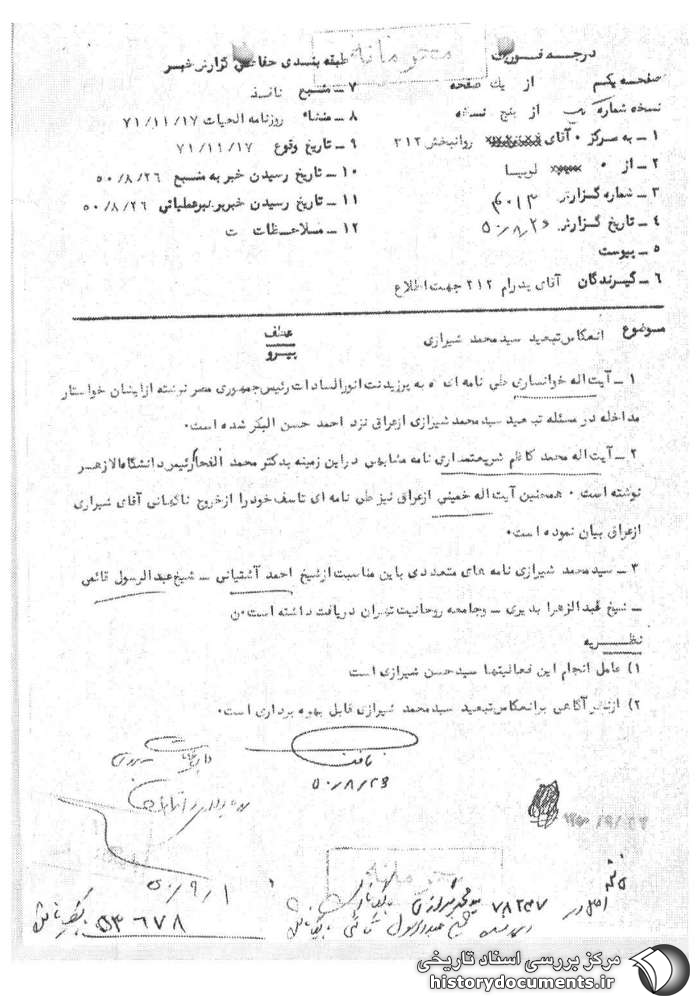 محرمانه
درجه فوریت
طبقه بندی حفاظتی گزارش خبر
صفحه یکم از یک صفحه
نسخه شماره از پنج نسخه
۱ – به مرکز ۰ آقای روانبخش ۳۱۲
۲ – از ۰ لوبیا
۳ – شماره گزارش
۴ – تاریخ گزارش ۵۰/۸/۲۶
۵ – پیوست
۶ – گیرندگان آقای پدرام ۳۱۲ جهت اطلاع
۷ – منبع نافذ
۸ – منشاء روزنامه الحیات ۷۱/۱۱/۱۷
۹ – تاریخ وقوع ۷۱/۱۱/۱۷
۱۰ – تاریخ رسیدن خبر به منبع ۵۰/۸/۲۶
۱۱ – تاریخ رسیدن خبر برهبر عملیاتی ۵۰/۸/۲۶
۱۲ – ملاحظات ت
موضوع انعکاس تبعید سید محمد شیرازی
عطف
پیرو
۱ – آیت اله خوانساری طی نامه ای که به پرزیدنت انورالسادات رئیس جمهوری مصر نوشته از ایشان خواستار
مداخله در مسئله تبعید سید محمد شیرازی از عراق نزد احمد حسن البکر شده است۰
۲ – آیت اله محمد کاظم شریعتمداری نامه مشابهی در این زمینه بدکتر محمد الفحام رئیس دانشگاه الازهر
نوشته است ۰ همچنین آیت اله خمینی از عراق نیز طی نامه ای تاسف خود را از خروج ناگهانی آقای شیرازی
از عراق بیان نموده است۰
۳ – سید محمد شیرازی نامه های متعددی باین مناسبت از شیخ احمد آشتیانی – شیخ عبدالرسول قائمی
– شیخ عبدالزهرا بدیری – وجامعه روحانیت تهران دریافت داشته است۰ن
نظریه
۱) عامل انجام این فعالیتها سید حسن شیرازی است
۲) ازنظر آگاهی برانعکاس تبعید سید محمد شیرازی قابل بهره برداری است۰
۵۰/۸/۲۶
۵۰/۹/۱
محرمانه
۷۸۲۴۷
۵۳۶۷۸
مرکز بررسی اسناد تاریخی
historydocuments.ir